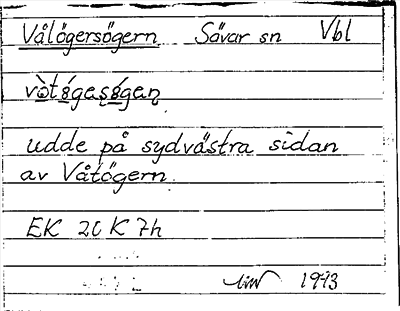 Vålögersögern Sävar sn Vbl
vò̀tö́gesö́gen
udde på sydvästra sidan
av Våtögern
EK 20 K 7h
1973